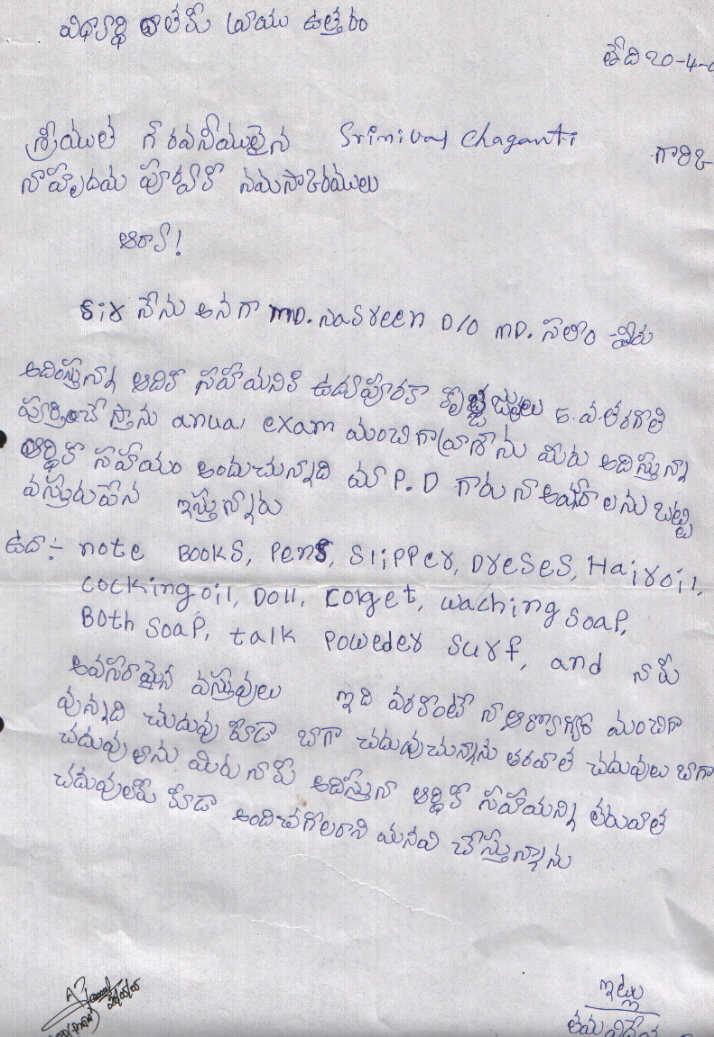 విద్యార్థి దాతకు వ్రాయు ఉత్తరం
తేది 20-4-0
శ్రీయుత గౌరవనీయులైన Srinivas Chaganti గారికి
నాహృదయ పూర్వక నమస్కారములు
ఆర్యా!
Sir నేను అనగా MD. Nasreen D/o MD. సలీం మీరు
అదిస్తున్నా ఆదిక సహయనికి ఉదుపూరక కృతజ్ఞతలు 6.వ.తరగతి
పూర్తిచేస్తాను anual exam మంచిగావ్రాశాను మీరు అదిస్తున్నా
ఆర్థిక సహయం అందుచున్నాది మా P.D గారు నా అవసరాలను బట్టి
వస్తురుపేన ఇస్తున్నారు
ఉదా:- note BOOKS, Pens, Slipper, Dreses, Hairoil,
cockingoil, Doll, Colget, waching soap,
Both soap, talk Poweder surf, and నాకు
అవసరామైన వస్తువులు ఇది వరకంటే నా ఆరోగ్యం మంచిగా
వున్నది చదువు కూడా బాగా చదువుచున్నాను తరవాత చదువులు బాగా
చదువుతాను మీరు నాకు అదిస్తున్నా ఆర్థిక సహయన్ని తరువాత
చదువులకు కూడా అందించగలరాని మనవి చేస్తున్నాను
ఇట్లు
తమ విదేయ